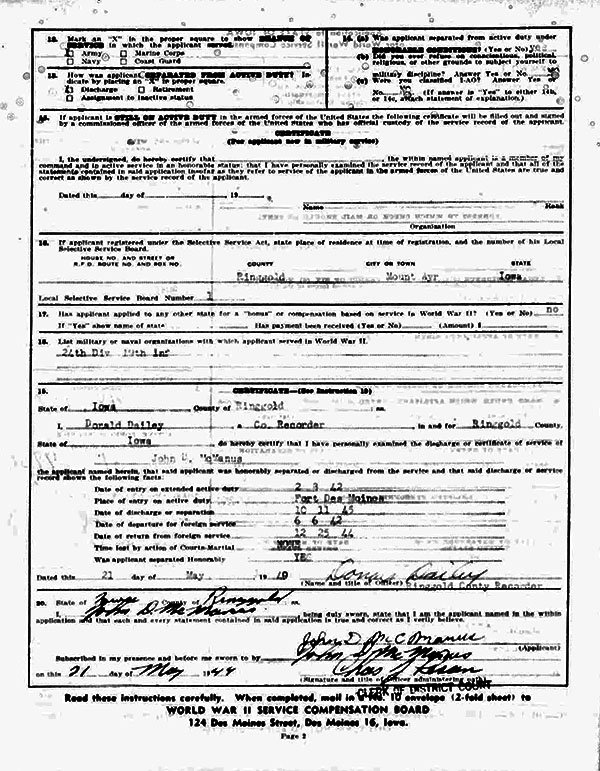 12. Mark an "X" in the proper square to show BRANCH OF
SERVICE in which the applicant served.
Army □ Marine Corps
□ Navy □ Coast Guard
13. How was applicant SEPARATED FROM ACTIVE DUTY? In-
dicate by placing an "X" in proper square.
Discharge □ Retirement
□ Assignment to inactive status
14. (a) Was applicant separated from active duty under
HONORABLE CONDITIONS? (Yes or No) Yes
(b) Did you ever refuse on conscientious, political,
religious or other grounds to subject yourself to
military discipline? Answer Yes or No. No
(c) Were you classified 1-AO? Answer Yes or
No. No (If answer is "Yes" to either 14b,
or 14c, attach statement of explanation.)
15. If applicant is STILL ON ACTIVE DUTY in the armed forces of the United States the following certificate will be filled out and signed
by a commissioned officer of the armed forces of the United States who has official custody of the service record of the applicant.
CERTIFICATE
(For applicant now in military service)
I, the undersigned, do hereby certify that the within named applicant is a member of my
command and in active service in an honorable status; that I have personally examined the service record of the applicant and that all of the
statements contained in said application insofar as they refer to service of the applicant in the armed forces of the United States are true and
correct as shown by the service record of the applicant.
Dated this day of 19
Name Rank
Organization
16. If applicant registered under the Selective Service Act, state place of residence at time of registration, and the number of his Local
Selective Service Board.
HOUSE NO. AND STREET OR
R.F.D. ROUTE NO. AND BOX NO. COUNTY CITY OR TOWN STATE
Ringgold Mount Ayr Iowa
Local Selective Service Board Number 1
17. Has applicant applied to any other state for a "bonus" or compensation based on service in World War II? (Yes or No) no
If "Yes" show name of state Has payment been received (Yes or No) (Amount) $
18. List military or naval organizations with which applicant served in World War II.
24th Div 19th Inf
19. CERTIFICATE—(See Instruction 19)
State of Iowa County of Ringgold ss.
I, Donald Dailey a Co. Recorder in and for Ringgold County,
State of Iowa do hereby certify that I have personally examined the discharge or certificate of service of
John D. McManus
the applicant named herein, that said applicant was honorably separated or discharged from the service and that said discharge or service
record shows the following facts:
Date of entry on extended active duty 2 3 42
Place of entry on active duty Fort Des Moines
Date of discharge or separation 10 11 45
Date of departure for foreign service 6 6 42
Date of return from foreign service 12 25 44
Time lost by action of Courts-Martial NONE
Was applicant separated Honorably YES
Dated this 21 day of May 1949 Donald Dailey
(Name and title of Officer) Ringgold Conty Recorder
20. State of Iowa Ringgold ss.
I, John D. McManus being duly sworn, state that I am the applicant named in the within
application and that each and every statement contained in said application is true and correct as I verily believe.
John D. McManus
(Applicant)
Subscribed in my presence and before me sworn to by John D McManus
on this 21 day of May 1949 Chas
(Signature and title of officer administering oath)
CLERK OF DISTRICT COURT
Read these instructions carefully. When completed, mail in a No. 10 envelope (2-fold sheet) to
WORLD WAR II SERVICE COMPENSATION BOARD
124 Des Moines Street, Des Moines 16, Iowa.
Page 2